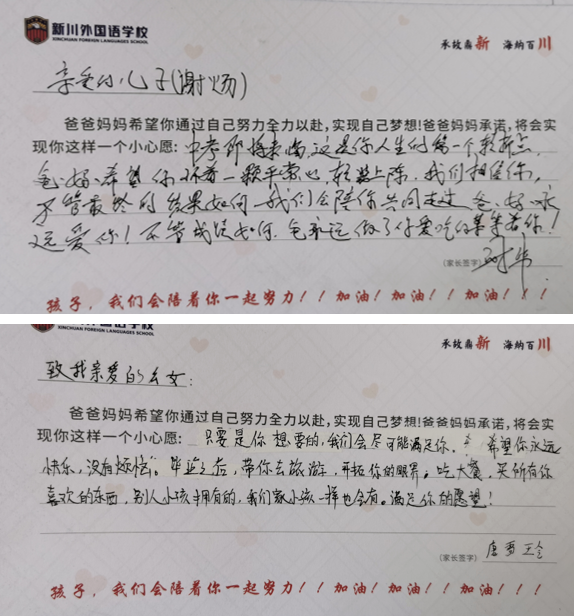 新川外国语学校
XINCHUAN FOREIGN LANGUAGES SCHOOL
承故鼎新 海纳百川
亲爱的儿子(谢炀)
爸爸妈妈希望你通过自己努力全力以赴,实现自己梦想!爸爸妈妈承诺,将会实
现你这样一个小心愿:中考即将来临,这是你人生的第一个转折点,
爸妈希望你怀着一颗平常心,轻装上阵,我们相信你,
不管最终的结果如何,我们会陪你共同走过,爸、妈永
远爱你!不管成绩如何,爸永远做了你爱吃的菜等着你!
(家长签字)
孩子,我们会陪着你一起努力!!加油!加油!!加油!!!
XINCHUAN FOREIGN LANGUAGES SCHOOL
承故鼎新 海纳百川
致我亲爱的幺女:
爸爸妈妈希望你通过自己努力全力以赴,实现自己梦想!爸爸妈妈承诺,将会实
现你这样一个小心愿:只要是你想要的,我们会尽可能满足你。希望你永远
快乐,没有烦恼。毕业之后,带你去旅游,开拓你的眼界,吃大餐,买所有你
喜欢的东西,别人小孩拥有的,我们家小孩一样也会有。满足你的愿望!
(家长签字)唐
孩子,我们会陪着你一起努力!!加油!加油!!加油!!!